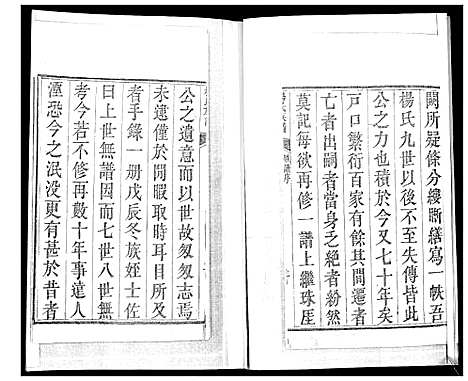 闕所疑條分縷晰繕寫一帙吾
楊氏九世以後不至失傳者此
公之力也抵於今又七十年矣
戸口繁衍百家有餘其間遷者
亡者出嗣者當身之絶者紛然
莫記每欲再修一譜上繼珠厓
公之遺意而以世故匆匆志焉
未逮僅於閒暇取時耳目所及
者手錄一册戊辰冬族姪士佐
曰上世無譜因而七世八世無
考今若不修再數十年事遠人
湮恐今之泯没更有甚於昔者